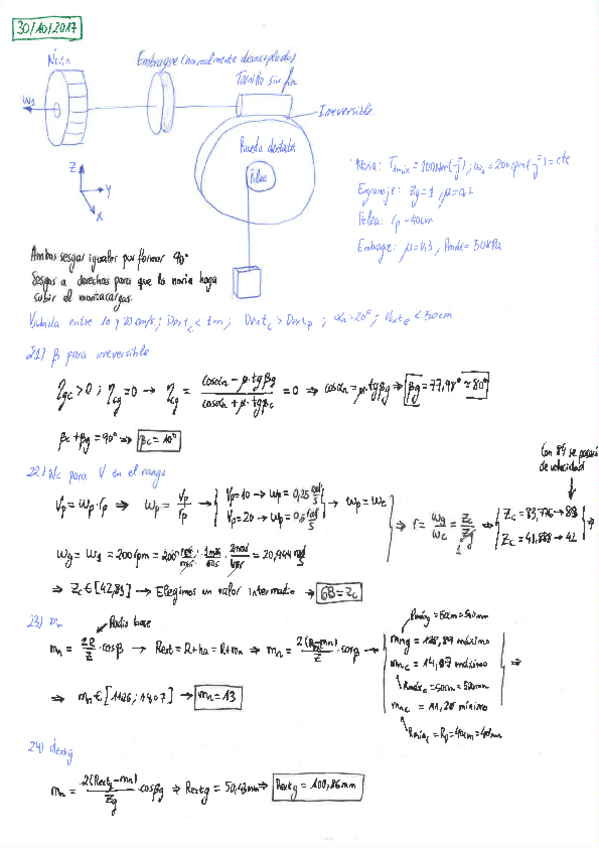 30/10/2017
Noria
Embrague (normalmente desacoplado)
Tornillo sin fin
Irreversible
ω1
Rueda dentada
Polea
Z
Y
X
Noria: T1máx = 100Nm(-j); ω1 = 200rpm(-j) = cte
Engranaje: Zg=1, μ=0,2
Polea: rp = 40cm
Embrague: μ=0,3, Padm = 50kPa
Ambos sesgos iguales por formar 90°
Sesgos a derechas para que la noria haga
subir el montacargas.
Vsubida entre 10 y 20 cm/s; Dextc < 1m; Dextc > Dextp; αn=20°; < 50cm
21) β para irreversible
ηgc > 0; ηcg = 0 → ηcg = (cosαn - μ·tgβg)/(cosαn + μ·tgβc) = 0 ⇒ cosαn = μ·tgβg ⇒ βg = 77,98° ≃ 80°
βc + βg = 90° ⇒ βc = 10°
22) Nc para V en el rango
Con 84 se pasaría
de velocidad
Vp = ωp·rp ⇒ ωp = Vp/rp → Vp=10 → ωp = 0,25 rad/s
Vp=20 → ωp = 0,5 rad/s → ωp = ωc
⇒ r = ωg/ωc = Zc/Zg ⇒ Zc = 83,776 → 83
Zc = 41,888 → 42 ⇒
ωg = ω1 = 200rpm = 200 rev/min · 1min/60s · 2πrad/1rev = 20,944 rad/s
⇒ Zc ∈ [42,83] → Elegimos un valor intermedio → 68 = Zc
23) mn
Radio base
mn = 2R/Z · cosβ → Rext = R + ha = R + mn ⇒ mn = 2(Rext-mn)/Z · cosβ →
Rmáxg = 50cm = 500mm
mng = 128,89 máximo
mnc = 14,07 máximo
Rmáxc = 50cm = 500mm
mnc = 11,26 mínimo
Rminc = Rp = 40cm = 400mm
⇒
⇒ mn ∈ [11,26; 14,07] → mn = 13
24) dextg
mn = 2(Rextg-mn)/Zg · cosβg ⇒ Rextg = 50,43mm ⇒ Dextg = 100,86mm